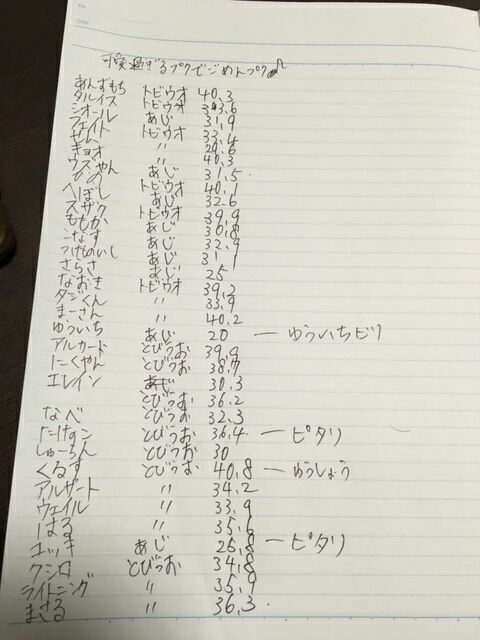 No.
Date
可愛過ぎるプクでじめトプク♪
あんずもち トビウオ 40.3
タルイス トビウオ 33.6
シオール あじ 31.9
フェイト トビウオ 33.4
せん 〃 29.6
キョオ 〃 40.3
ウスやん あじ 31.5
ひめ トビウオ 40.1
へぼし あじ 32.6
スザク トビウオ 39.9
ももか あじ 30.8
こなす あじ 32.9
つけものいし あじ 31.1
さらさ あじ 25
なおき トビウオ 39.2
タジくん 〃 33.9
まーさん 〃 40.2
ゆういち あじ 20 ーゆういちビリ
アルカード とびうお 39.9
にくやん とびうお 38.7
エレイン あじ 30.3
とびうお 36.2
なべ とびうお 32.3
たけのこ とびうお 36.4 ーピタリ
しゅーちん とびうお 30
くるす とびうお 40.8 ーゆうしょう
アルザート 〃 34.2
ウェイル 〃 33.9
はる 〃 35.6
ユッキ あじ 25.8 ーピタリ
クシロ とびうお 34.8
ライトニング 〃 35.9
まさる 〃 36.3